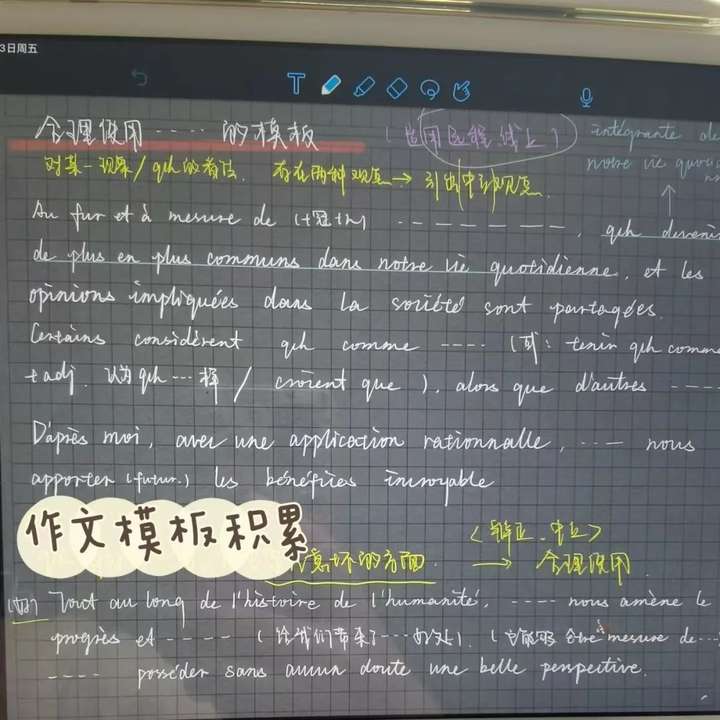 3日周五
T
合理使用 ···· 的模板
(适用远程线上)
intégrante de
notre vie quoti
对某一现象/qch的看法. 存在两种观点→引出中立观点.
Au fur et à mesure de (+冠+n) --------, qch devenir
de plus en plus communs dans notre vie quotidienne, et les
opinions impliquées dans la société sont partagées.
Certains considèrent qch comme ---- (或: tenir qch comme
+adj. 认为qch···样 / croient que ), alors que d'autres ----
D'après moi, avec une application rationnalle, --- nous
apporter (futur.) les bénéfices incroyable
作文模板积累
坏的方面.
<辩证. 中立>
→ 合理使用
Tout au long de l'histoire de l'humanité, ---- nous amène le
progrès et ----- (给我们带来了···好处), être à mesure de···
---- posséder sans aucun doute une belle perspective.